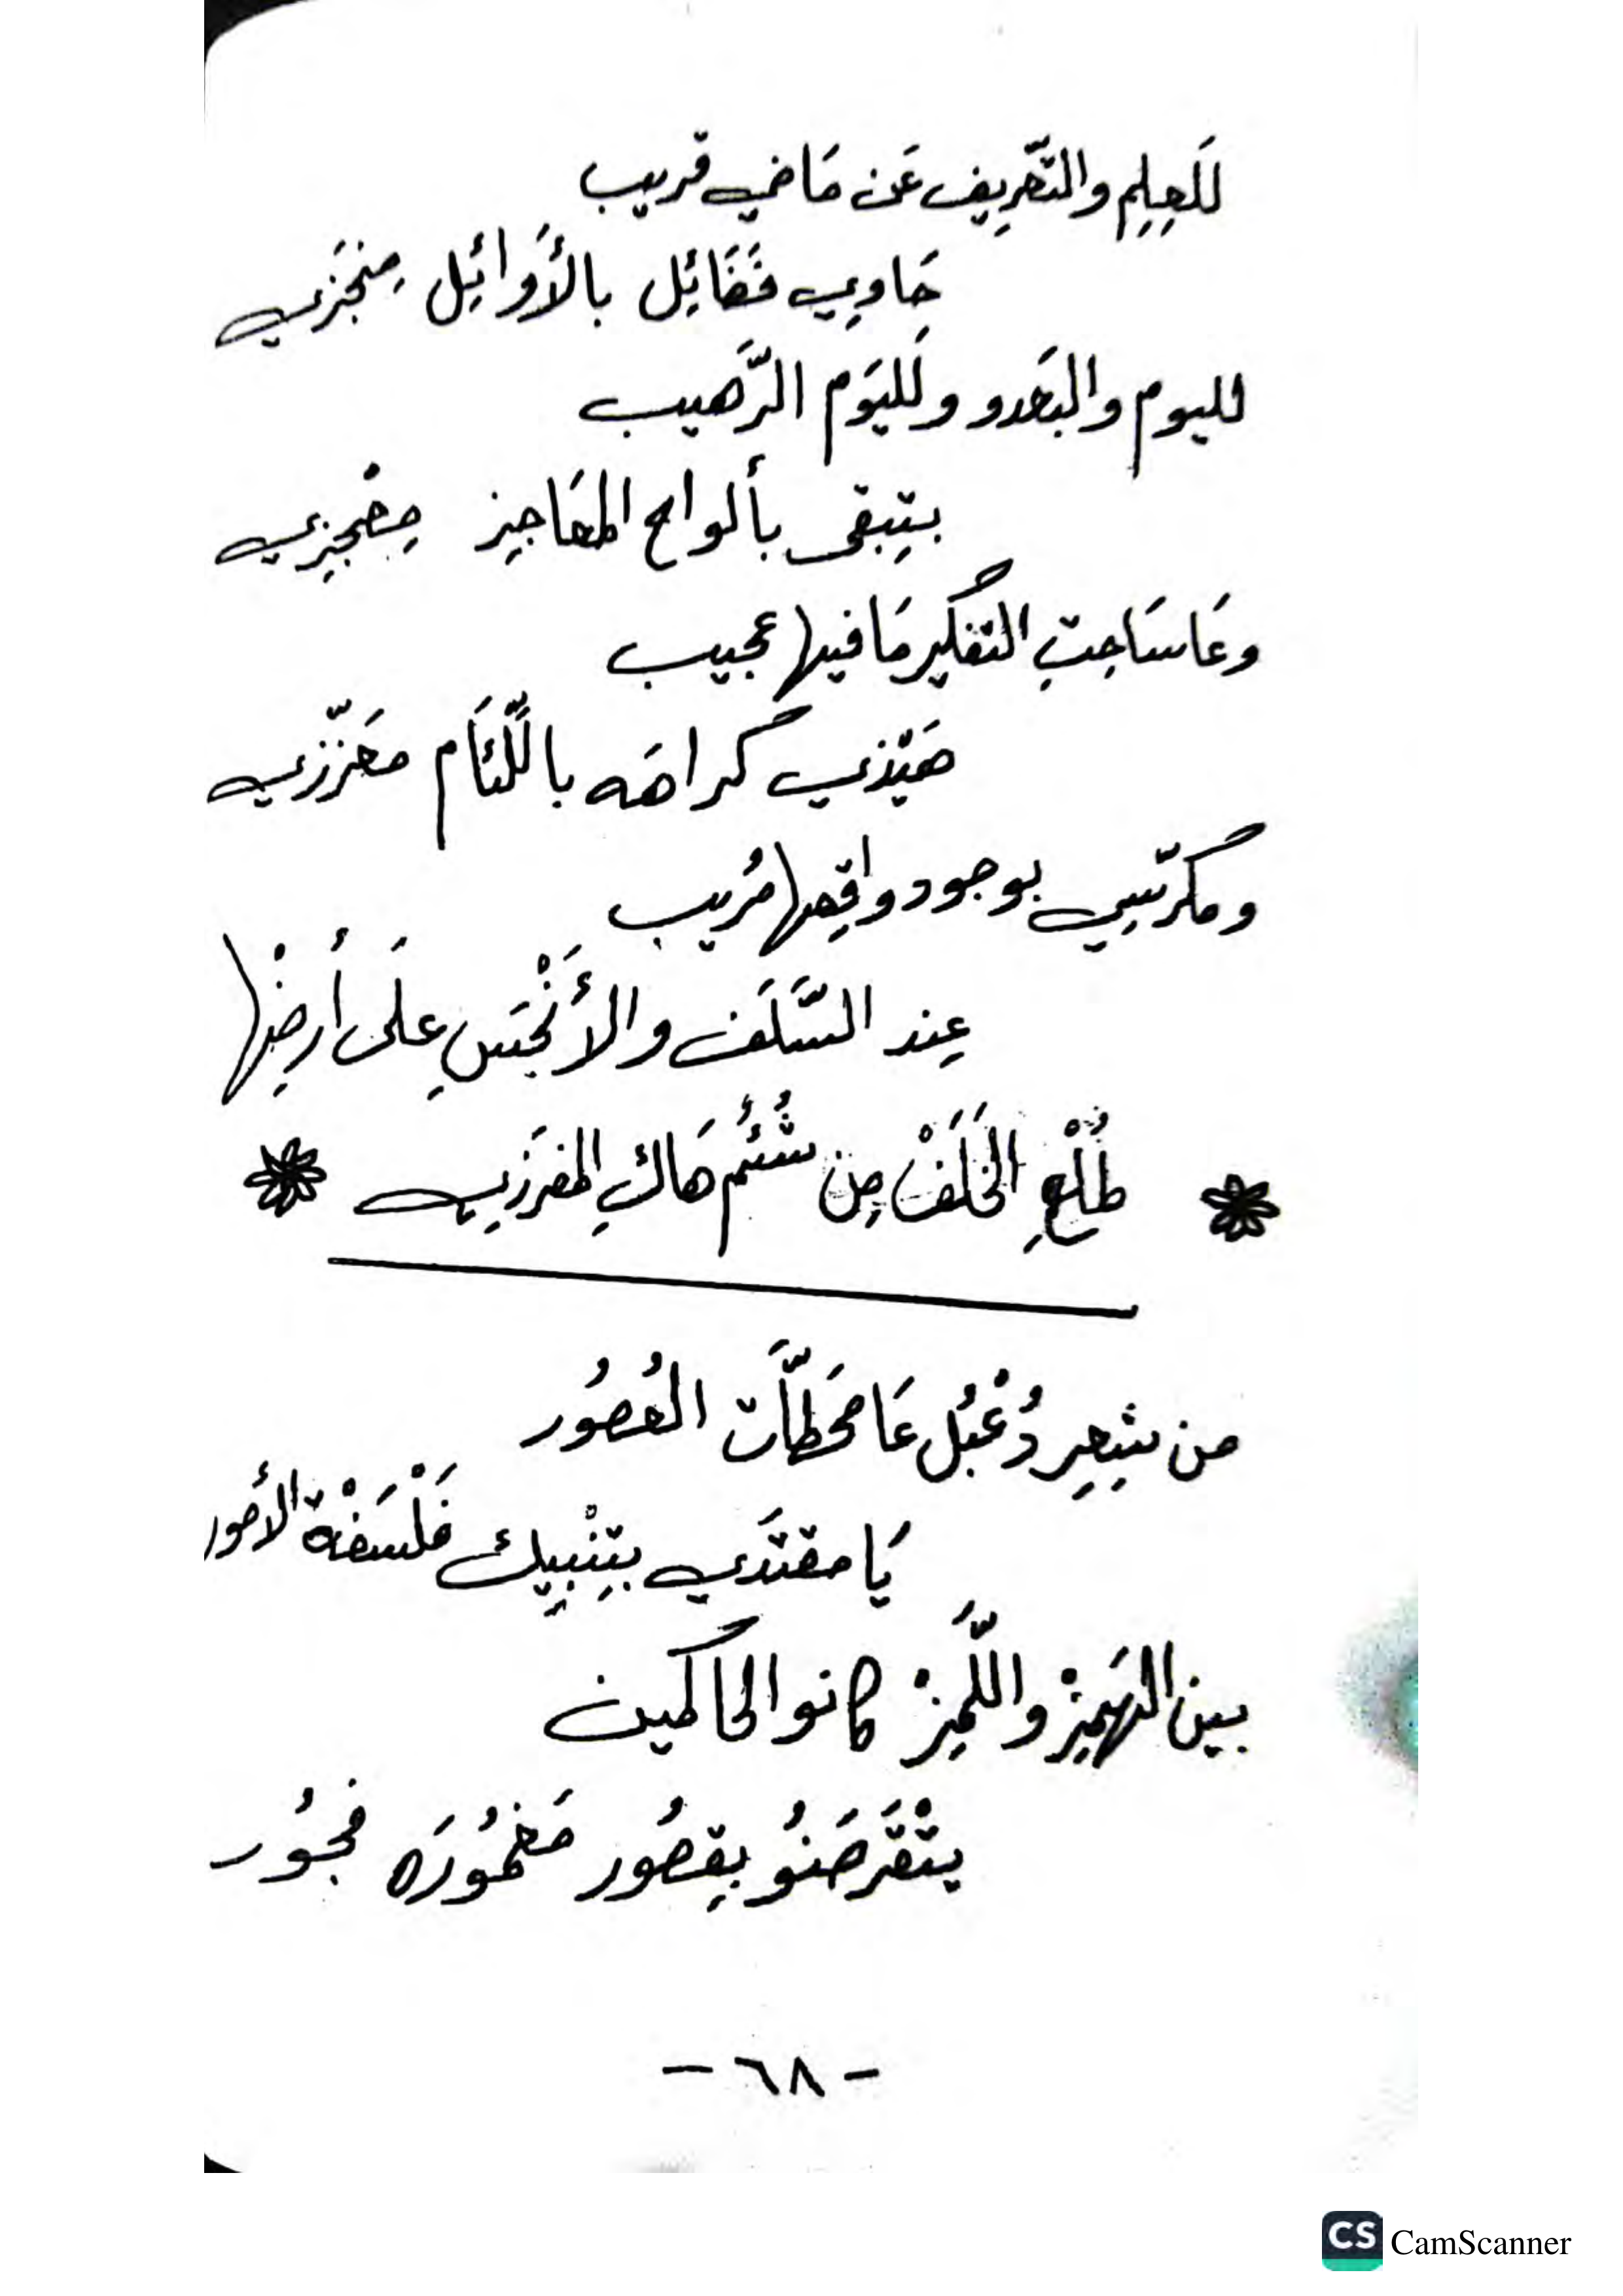 لَلعِلِم والتَّعرِيف عَن مَاضي قريب
حَاوِي فَضَائِل بالأَوَائِل مِنجَزي
لليوم والبَعدو ولَليَوم الرَّهيب
بتِبقى بألواح المعَاجِيز مِعْجِزي
وعَاسَاحِتِ التفكير مَافيها عجيب
هَيْذي كراهَه باللِّئَام معَزّزي
ومكرّسِي بوجود واقِعها مُريب
عِند السَّلَف والأَنْجَسِ علَى أَرضْها
طُلْعِ الخَلَفْ مِن شُئُم هَاكِ المفرَزِي
من شِعِر دُعْبُل عَا محَطَّات العُصُور
يَا مقتدَي بتِنْبِيك فَلْسَفْة الأمور
بين الهَمِزْ واللَّمِزْ كانو الحاكمين
يتْقَرصَنُو بِقصُور مَغمُورَه فجُور
- ٦٨ -
CS CamScanner